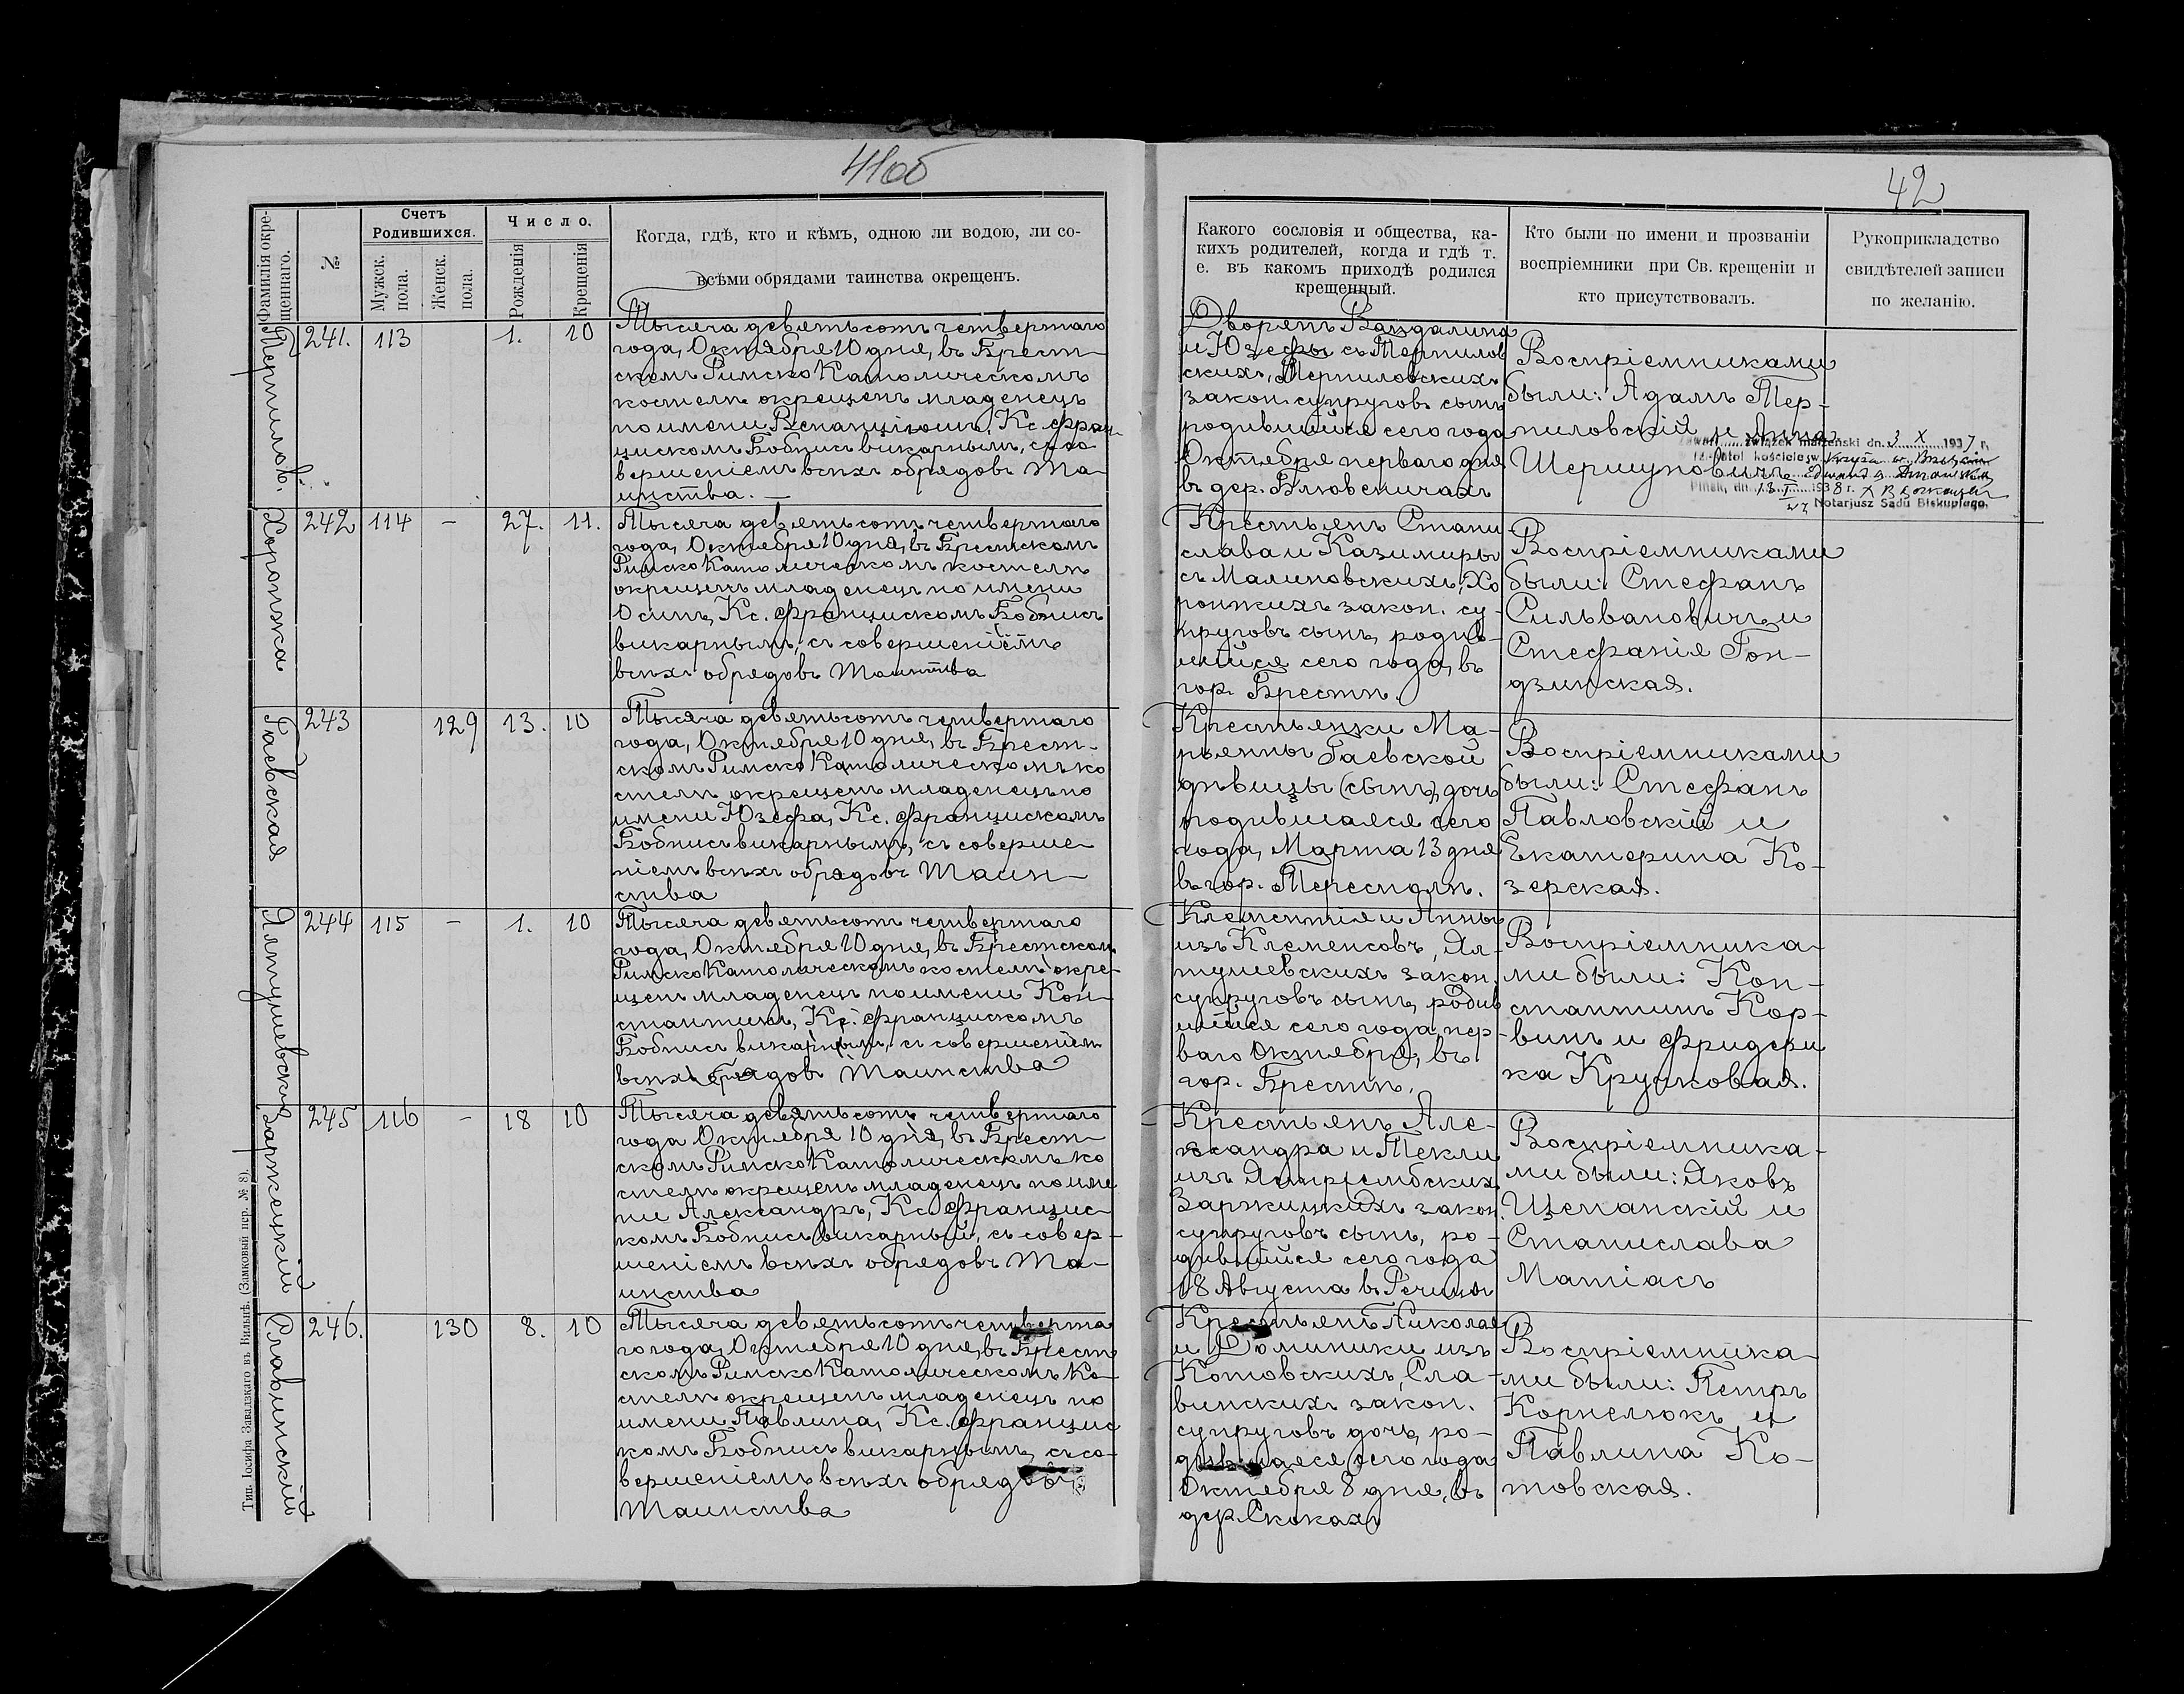 41об
42
Фамилія окре-
щеннаго.
№
Счетъ
Родившихся.
Мужск.
пола.
Женск.
пола.
Число.
Рожденія
Крещенія
Когда, гдѣ, кто и кѣмъ, одною ли водою, ли со-
всѣми обрядами таинства окрещенъ.
Какого сословія и общества, ка-
кихъ родителей, когда и гдѣ т.
е. въ какомъ приходѣ родился
крещенный.
Кто были по имени и прозваніи
воспріемники при Св. крещеніи и
кто присутствовалъ.
Рукоприкладство
свидѣтелей записи
по желанію.
Терпилов.
241. 113 1. 10
Тысяча девятьсотъ четвертаго
года, Октября 10 дня, въ Брест-
скомъ Римско Католическомъ
костелѣ окрещенъ младенецъ
по имени Венанціюшъ, Кс. Фран-
цискомъ Бобнисъ викарнымъ, съ со-
вершеніемъ всѣхъ обрядовъ Та-
инства. —
Дворянъ Вандалина
и Юзефы съ Терпилов
скихъ, Терпиловскихъ
закон. супруговъ сынъ
родившійся сего года
Октября перваго дня
въ дер.
Воспріемниками
были: Адамъ Тер-
пиловскій и Анна
związek małżeński dn. 3 X 1937 r.
Pińsk, dn. 18. I 1938 r.
Notarjusz Sądu Biskupiego.
Хоронжка
242 114 - 27. 11.
Тысяча девятьсотъ четвертаго
года, Октября 10 дня, въ Брестскомъ
Римско Католическомъ костелѣ
окрещенъ младенецъ по имени
Осипъ, Кс. Францискомъ Бобнисъ
викарнымъ, съ совершеніемъ
всѣхъ обрядовъ Таинства
Крестьянъ Стани
слава и Казимиры
съ Малиновскихъ, Хо
ронжихъ закон. су-
пруговъ сынъ, родив-
шійся сего года, въ
гор. Брестѣ.
Воспріемниками
были: Стефанъ
Сильвановичъ и
Стефанія Гон-
дзинская.
Гаевская
243 129 13. 10
Тысяча девятьсотъ четвертаго
года, Октября 10 дня, въ Брест-
скомъ Римско Католическомъ ко
стелѣ окрещенъ младенецъ по
имени Юзефа, Кс. Францискомъ
Бобнисъ викарнымъ, съ соверше-
ніемъ всѣхъ обрядовъ Таин-
ства
Крестьянки Ма-
рьянны Гаевской
дѣвицы (сынъ), дочь
родившаяся сего
года, Марта 13 дня
въ гор. Тересполѣ.
Воспріемниками
были: Стефанъ
Павловскій и
Екатерина Ко-
зерская.
Ялтушевскій
244 115 - 1. 10
Тысяча девятьсотъ четвертаго
года, Октября 10 дня, въ Брестскомъ
Римско Католическомъ костелѣ окре-
щенъ младенецъ по имени Кон-
стантинъ, Кс. Францискомъ
Бобнисъ викарнымъ, съ совершеніемъ
всѣхъ обрядовъ Таинства
Клементія и Анны
изъ Клеменсовъ, Ял-
тушевскихъ закон.
супруговъ сынъ, родив
шійся сего года, пер-
ваго Октября, въ
гор. Брестѣ.
Воспріемника-
ми были: Кон-
стантинъ Кор-
винъ и Фридери
ка Крушковая.
Заржецкій
245 116 - 18 10
Тысяча девятьсотъ четвертаго
года Октября 10 дня, въ Брест-
скомъ Римско Католическомъ ко
стелѣ окрещенъ младенецъ по име
ни Александръ, Кс. Францис-
комъ Бобнисъ викарный, съ совер-
шеніемъ всѣхъ обрядовъ Та-
инства
Крестьянъ Але-
ксандра и Текли
изъ Ястржембскихъ
Заржицкихъ закон.
супруговъ сынъ, ро-
дившійся сего года
18 Августа въ
Воспріемника-
ми были: Яковъ
Щепанскій и
Станислава
Матіасъ
Славинскій
246. 130 8. 10
Тысяча девятьсотъ четверта
го года, Октября 10 дня, въ Брест
скомъ Римско Католическомъ Ко-
стелѣ окрещенъ младенецъ по
имени Павлина, Кс. Францис
комъ Бобнисъ викарнымъ, съ со-
вершеніемъ всѣхъ обрядовъ
Таинства
Крестьянъ Николая
и Доминики изъ
Котовскихъ, Сла-
винскихъ закон.
супруговъ дочь, ро-
дившаяся сего года
Октября 8 дня, въ
дер. Скокахъ
Воспріемника-
ми были: Петръ
Корнелюкъ и
Павлина Ко-
товская.
Тип. Іосифа Завадзкаго въ Вильнѣ. (Замковый пер. № 8).